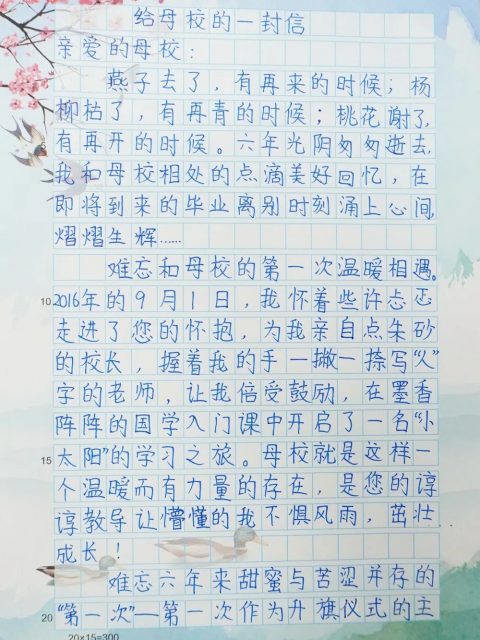 给母校的一封信
亲爱的母校：
燕子去了，有再来的时候；杨
柳枯了，有再青的时候；桃花谢了，
有再开的时候。六年光阴匆匆逝去，
我和母校相处的点滴美好回忆，在
即将到来的毕业离别时刻涌上心间，
熠熠生辉……
难忘和母校的第一次温暖相遇。
10 2016年的9月1日，我怀着些许忐忑
走进了您的怀抱，为我亲自点朱砂
的校长，握着我的手一撇一捺写“人”
字的老师，让我倍受鼓励，在墨香
阵阵的国学入门课中开启了一名“小
15 太阳”的学习之旅。母校就是这样一
个温暖而有力量的存在，是您的谆
谆教导让懵懂的我不惧风雨，茁壮
成长！
难忘六年来甜蜜与苦涩并存的
20 “第一次”—第一次作为升旗仪式的主
20×15=300